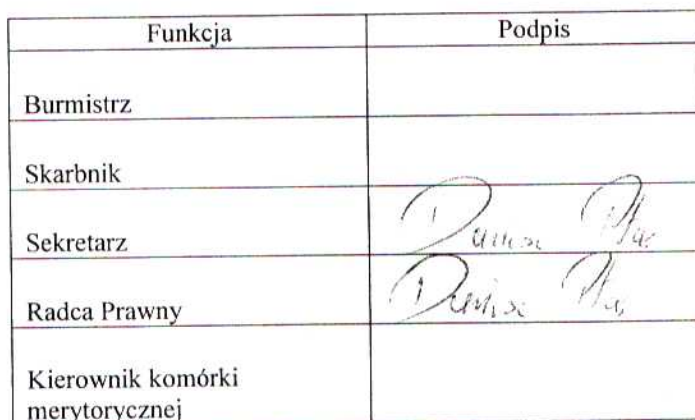 Funkcja Podpis
Burmistrz
Skarbnik
Sekretarz
Radca Prawny
Kierownik komórki
merytorycznej